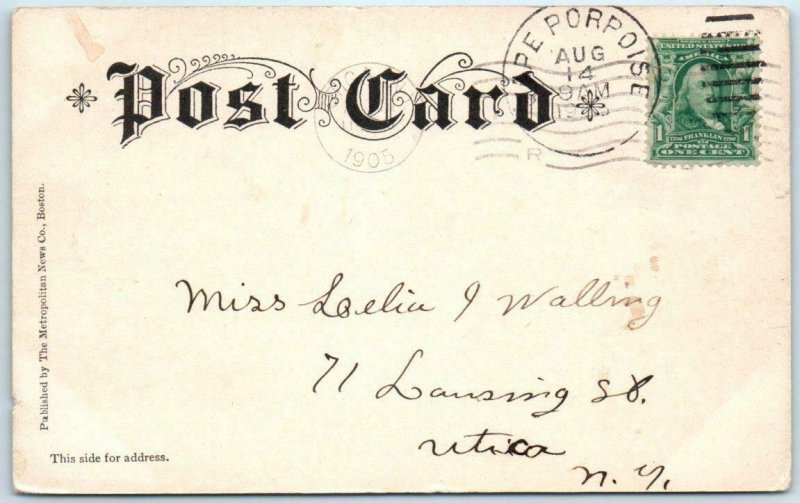 Post Card
PE PORPOISE
AUG
14
9AM
R
1905
UNITED STATES OF AMERICA
1 FRANKLIN 1
POSTAGE
ONE CENT
Published by The Metropolitan News Co., Boston.
Miss Loelia J Walling
71 Lansing St.
Utica
N. Y.
This side for address.